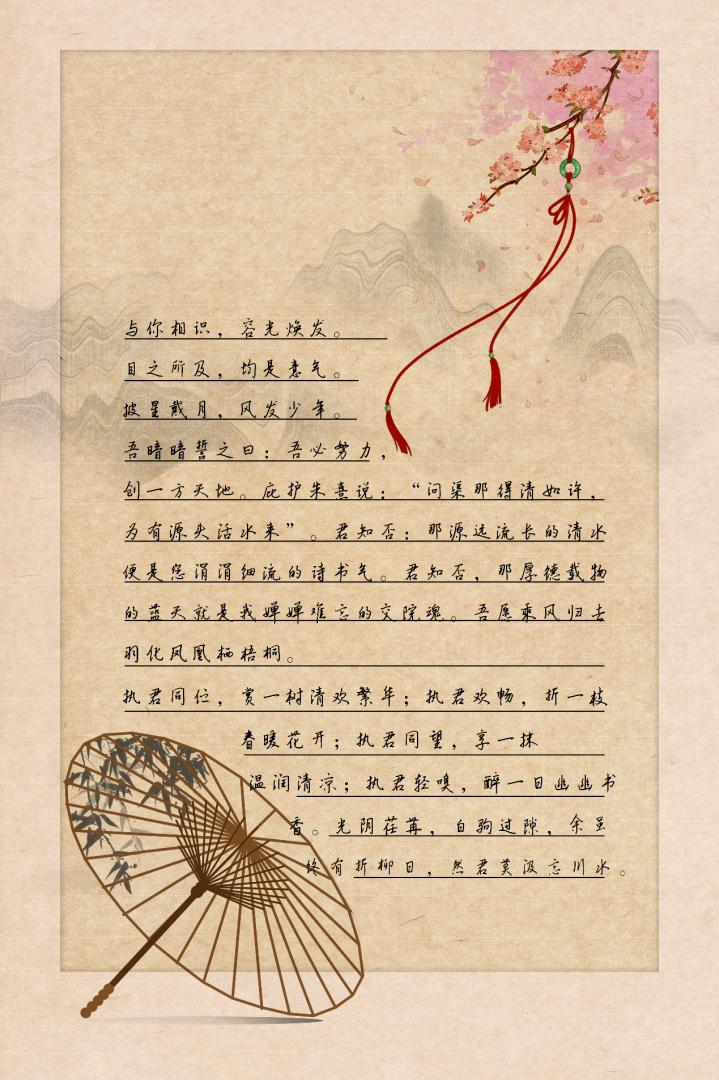 与你相识，容光焕发。
目之所及，均是意气。
披星戴月，风发少年。
吾暗暗誓之曰：吾必努力，
创一方天地。庇护朱熹说：“问渠那得清如许，
为有源头活水来”。君知否：那源远流长的清水
便是您涓涓细流的诗书气。君知否，那厚德载物
的蓝天就是我婵婵难忘的交院魂。吾愿乘风归去
羽化凤凰栖梧桐。
执君同伫，赏一树清欢繁华；执君欢畅，折一枝
春暖花开；执君同望，享一抹
温润清凉；执君轻嗅，醉一日幽幽书
香。光阴荏苒，白驹过隙，余虽
终有折柳日，然君莫汲忘川水。